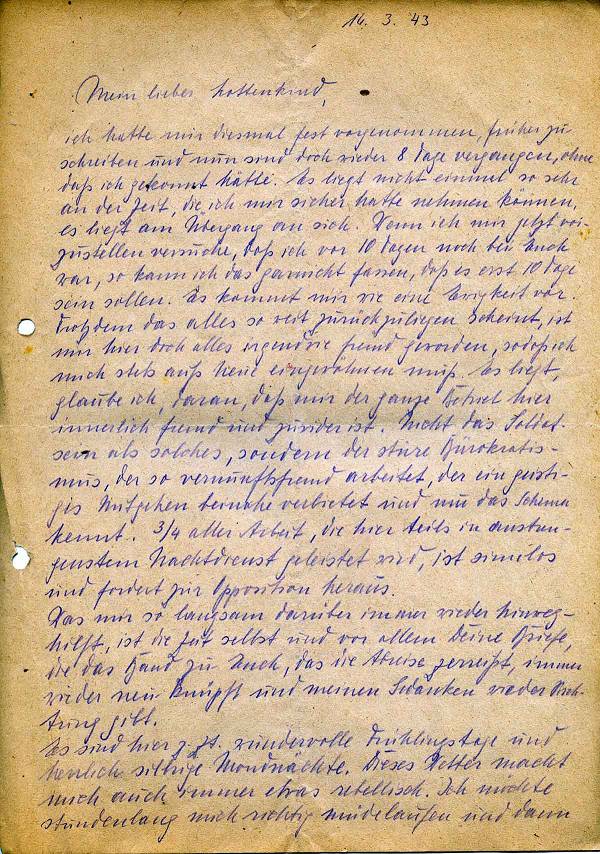 16. 3. 43
Mein lieber
ich hatte mir diesmal fest vorgenommen, früher zu
schreiben und nun sind doch wieder 8 Tage vergangen, ohne
daß ich gekonnt hätte. Es liegt nicht einmal so sehr
an der Zeit, die ich mir sicher hätte nehmen können,
es liegt am Übergang an sich. Wenn ich mir jetzt vor-
zustellen versuche, daß ich vor 10 Tagen noch bei Euch
war, so kann ich das garnicht fassen, daß es erst 10 Tage
sein sollen. Es kommt mir wie eine Ewigkeit vor.
Trotzdem das alles so weit zurückzuliegen scheint, ist
mir hier doch alles irgendwie fremd geworden, sodaß ich
mich stets aufs neue eingewöhnen muß. Es liegt,
glaube ich, daran, daß mir der ganze Betrieb hier
innerlich fremd und zuwider ist. Nicht das Soldat-
sein als solches, sondern der sture Bürokratis-
mus, der so vernunftsfremd arbeitet, der ein geisti-
ges Mitgehen beinahe verbietet und nur das Schema
kennt. 3/4 aller Arbeit, die hier teils in anstren-
genstem Nachtdienst geleistet wird, ist sinnlos
und fordert zur Opposition heraus.
Was mir so langsam darüber immer wieder hinweg-
hilft, ist die Zeit selbst und vor allem Deine Briefe,
die das Band zu Euch, das die Abreise zerreißt, immer
wieder neu knüpft und meinen Gedanken wieder Rich-
tung gibt.
Es sind hier z. Zt. wundervolle Frühlingstage und
herrlich silbrige Mondnächte. Dieses Wetter macht
mich auch immer etwas rebellisch. Ich möchte
stundenlang mich richtig müdelaufen und dann